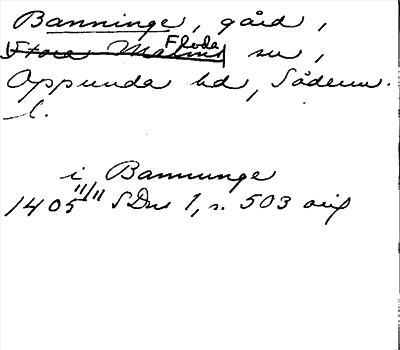 Banninge, gård,
Stora Malms Floda sn,
Oppunda hd, Söderm.
l.
i Bannunge
1405 11/11 SDns 1, s. 503 orig